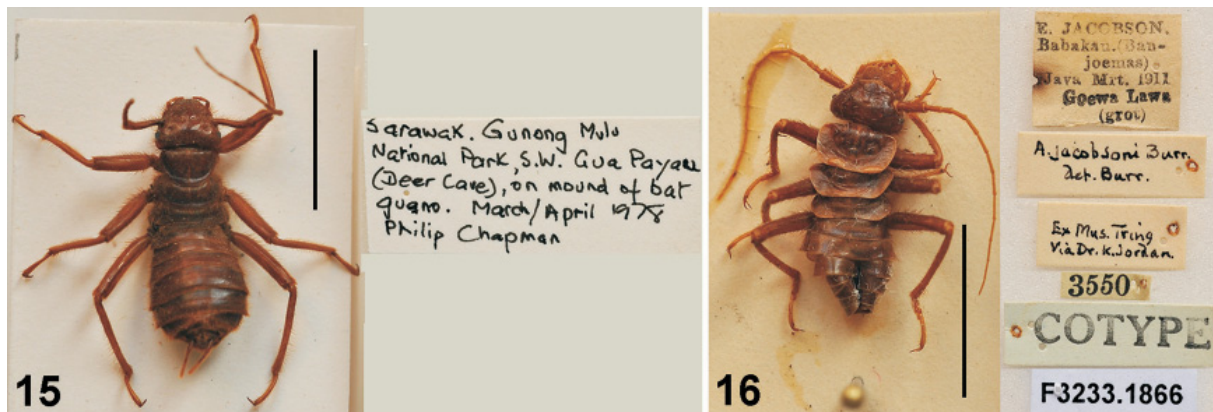 15
Sarawak. Gunong Mulu
National Park, S.W. Gua Payau
(Deer Cave), on mound of bat
guano. March/April 1978
Philip Chapman
16
E. JACOBSON.
Babakan.(Ban-
joemas)
Java Mrt. 1911
Goewa Lawa
(grot)
A. jacobsoni Burr.
Det. Burr.
Ex Mus. Tring
Via Dr. K. Jordan.
3550
COTYPE
F3233.1866